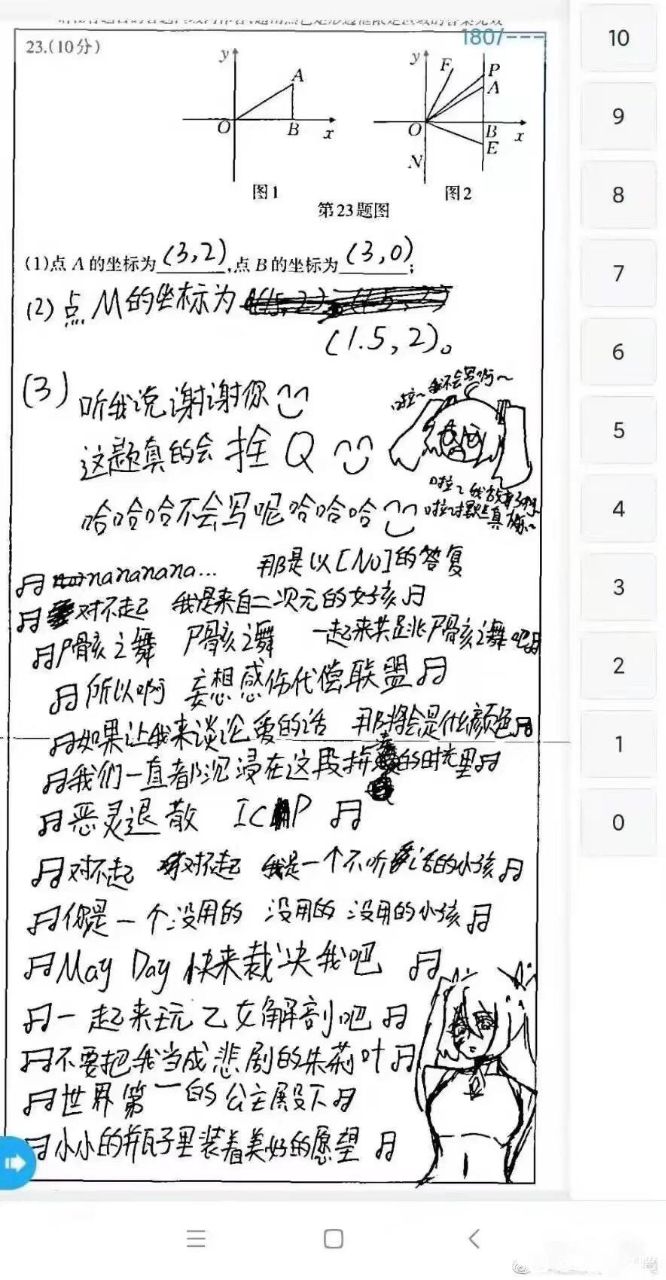 180/---
23.(10分)
y
A
O
B
x
图1
y
F
P
A
O
B
x
E
N
图2
第23题图
(1)点A的坐标为(3,2),点B的坐标为(3,0);
(2)点M的坐标为
(1.5,2)。
(3)听我说谢谢你
这题真的会拴Q
哈哈哈不会写呢哈哈哈
啦~我不会写啊~
nananana... 那是以[No]的答复
对不起 我是来自二次元的女孩
尸骸之舞 尸骸之舞 一起来共跳尸骸之舞吧
所以啊 妄想感伤代偿联盟
如果让我来谈论爱的话 那将会是什么颜色
我们一直都沉浸在这段拼的时光里
恶灵退散 ICHP
对不起 对不起 我是一个不听话的小孩
你是一个没用的 没用的 没用的小孩
May Day 快来裁决我吧
一起来玩乙女解剖吧
不要把我当成悲剧的朱莉叶
世界第一的公主殿下
小小的瓶子里装着美好的愿望
10
9
8
7
6
5
4
3
2
1
0